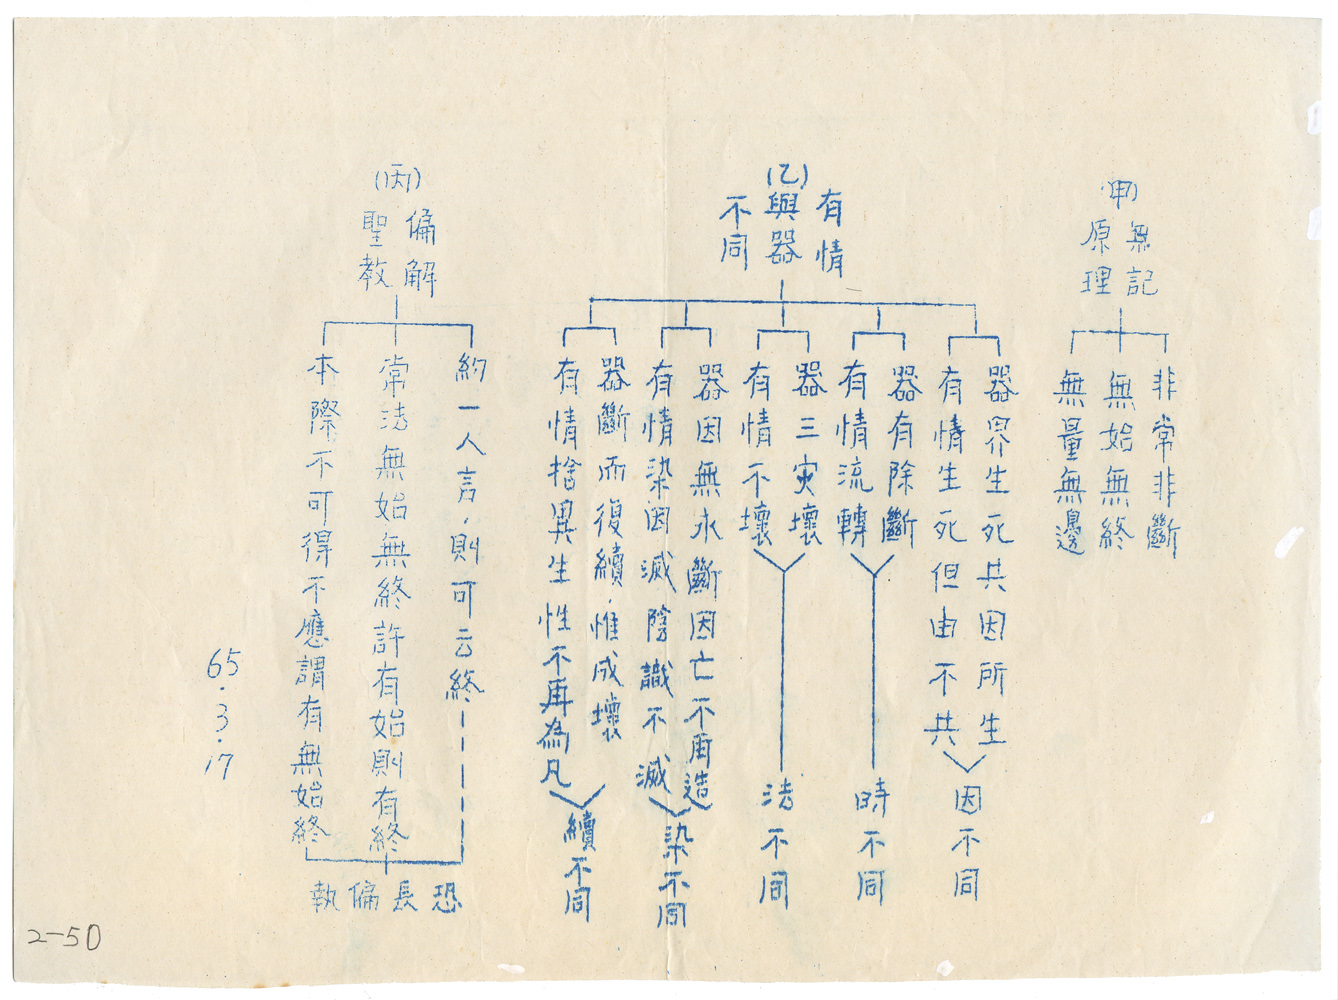 (甲)
無記
原理
非常非斷
無始無終
無量無邊
(乙)
有情
與器
不同
器界生死共因所生
有情生死但由不共
因不同
器有除斷
有情流轉
時不同
器三灾壞
有情不壞
法不同
器因無永斷因亡不再造
有情染因滅陰識不滅
染不同
器斷而復續.惟成壞
有情捨異生性不再為凡
續不同
(丙)
偏解
聖教
約一人言.則可云終
常法無始無終許有始則有終
本際不可得不應謂有無始終
恐長偏執
65.3.17
2-50